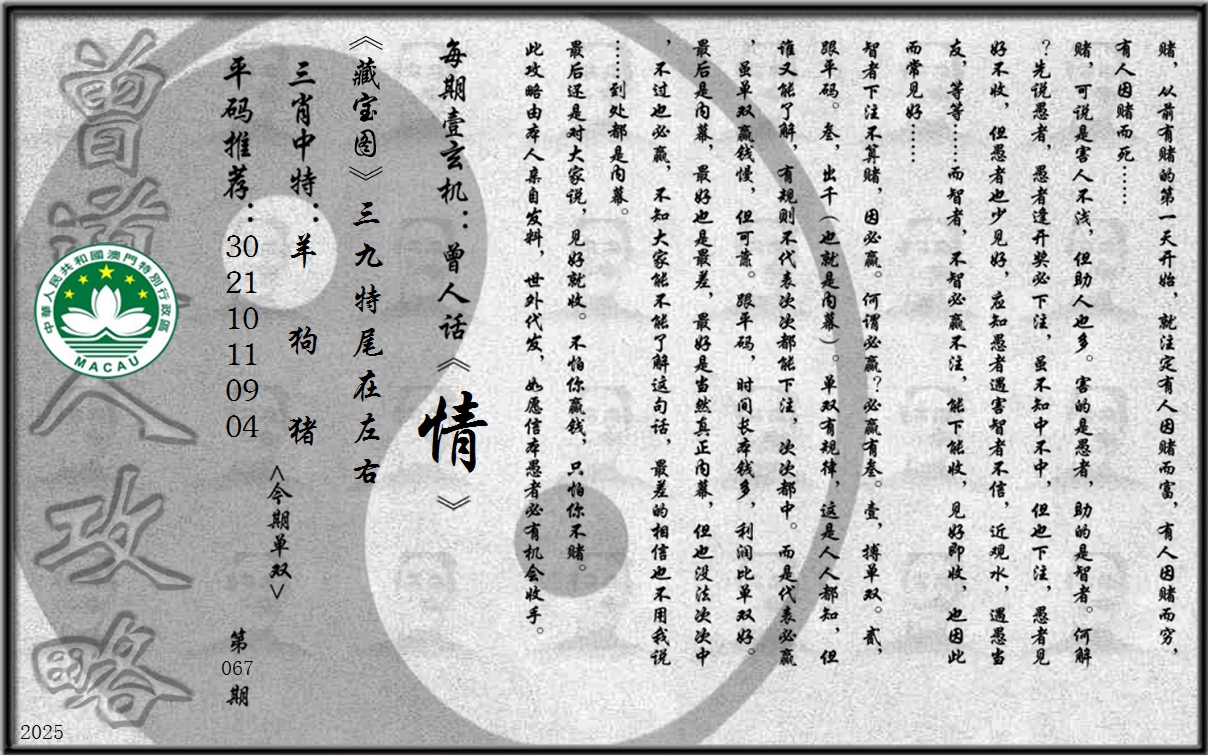 赌，从前有赌的第一天开始，就注定有人因赌而富，有人因赌而穷，
有人因赌而死……
赌，可说是害人不浅，但助人也多。害的是愚者，助的是智者。何解
？先说愚者，愚者逢开奖必下注，虽不知中不中，但也下注，愚者见
好不收，但愚者也少见好，应知愚者遇害智者不信，近观水，遇愚当
友，等等……而智者，不智必赢不注，能下能收，见好即收，也因此
而常见好……
智者下注不算赌，因必赢。何谓必赢？必赢有叁。壹，搏单双。贰，
跟平码。叁，出千（也就是内幕）。单双有规律，这是人人都知，但
谁又能了解，有规则不代表次次都能下注，次次都中。而是代表必赢
，虽单双赢钱慢，但可靠。跟平码，时间长本钱多，利润比单双好。
最后是内幕，最好也是最差，最好是当然真正内幕，但也没法次次中
，不过也必赢，不知大家能不能了解这句话，最差的相信也不用我说
……到处都是内幕。
最后还是对大家说，见好就收。不怕你赢钱，只怕你不赌。
此攻略由本人亲自发料，世外代发，如愿信本愚者必有机会收手。
每期壹玄机：曾人话《情》
《藏宝图》三九特尾在左右
三肖中特：羊 狗 猪
<今期单双>
平码推荐：30 21 10 11 09 04
第067期
曾道人攻略
中華人民共和國澳門特別行政區
MACAU
2025